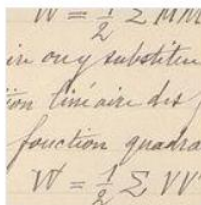 W = 1/2 Σ MM
in ou y substitu
ion linéaire des
fonction quadra
W = 1/2 Σ VV